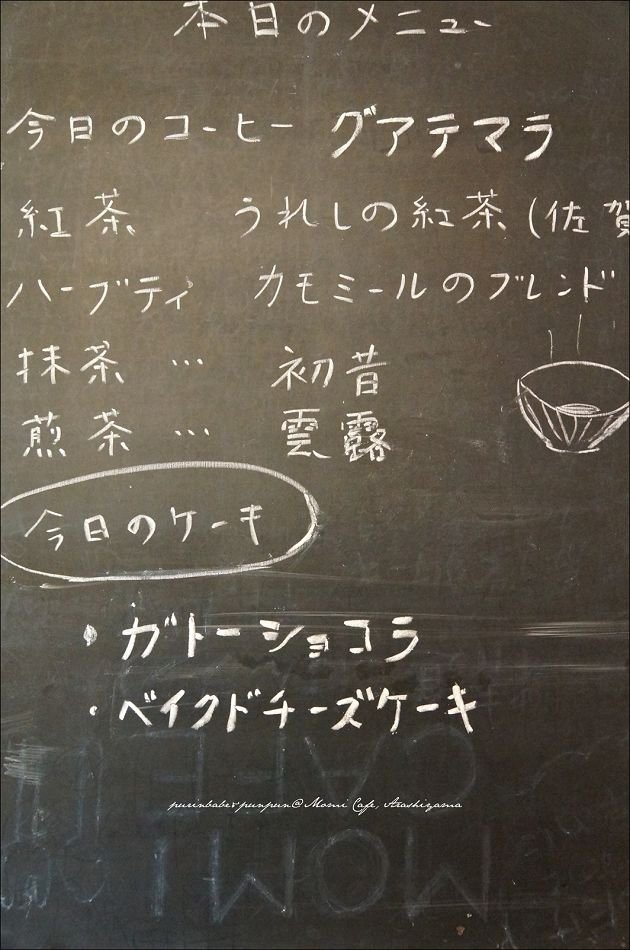 本日のメニュー
今日のコーヒー グアテマラ
紅茶 うれしの紅茶(佐賀
ハーブティ カモミールのブレンド
抹茶 … 初昔
煎茶 … 雲露
今日のケーキ
・ガトーショコラ
・ベイクドチーズケーキ
CAFE
purinbabe & punpun@Momi Cafe, Arashiyama
MOMI